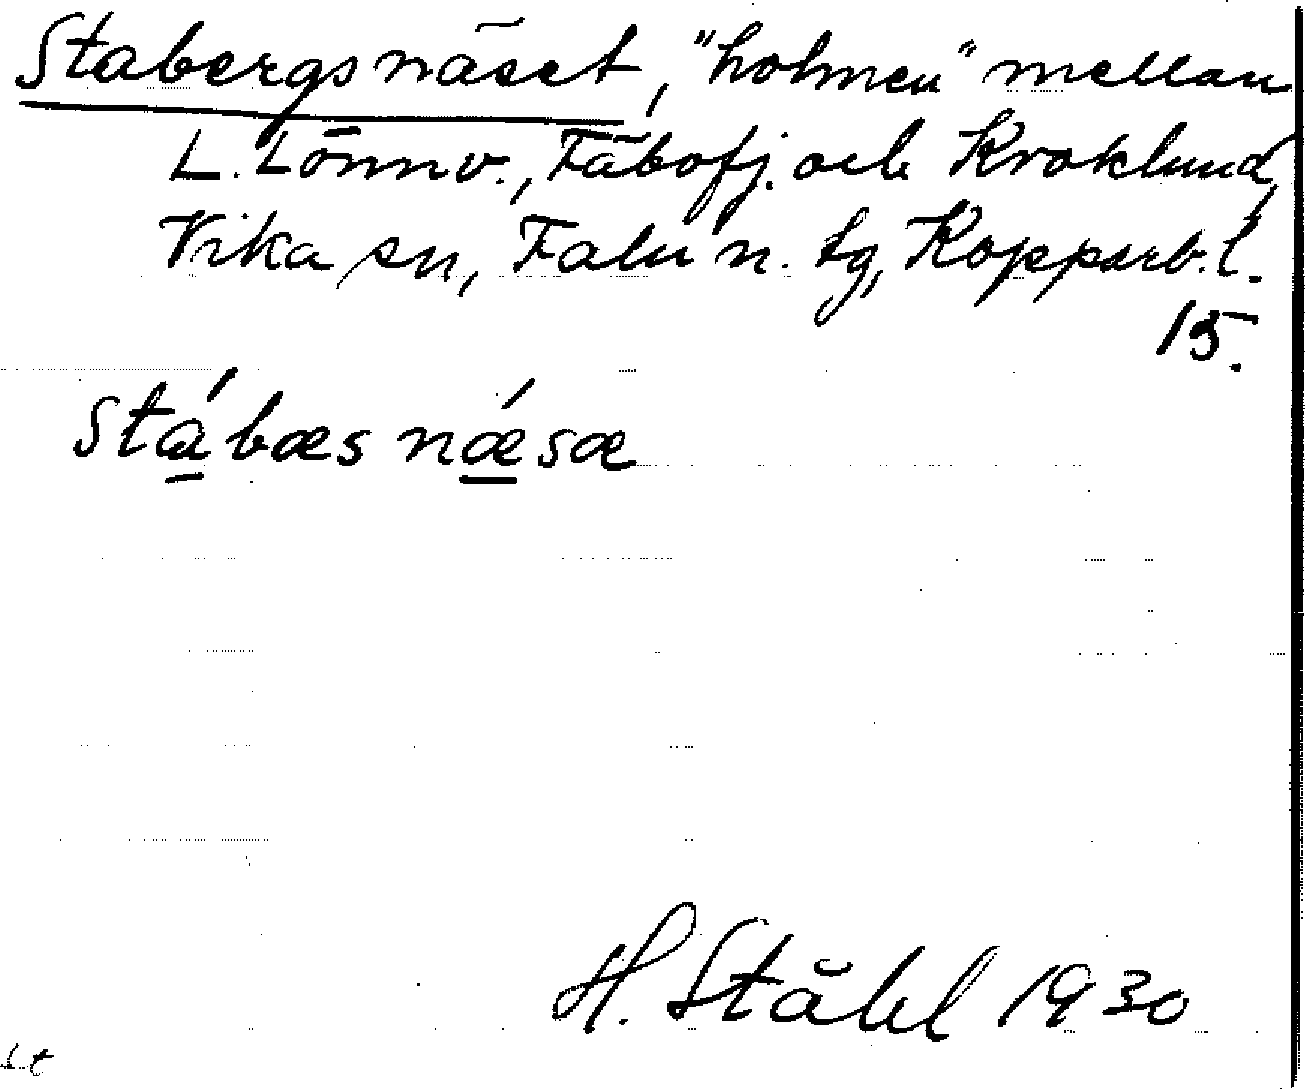 Stabergsnäset, "holmen" mellan
L. Lönnv., Fäbofj. och Kroklund,
Vika sn, Falu n. tg, Kopparb. l.
15.
Stábæs nǽsæ
H. Ståhl 1930